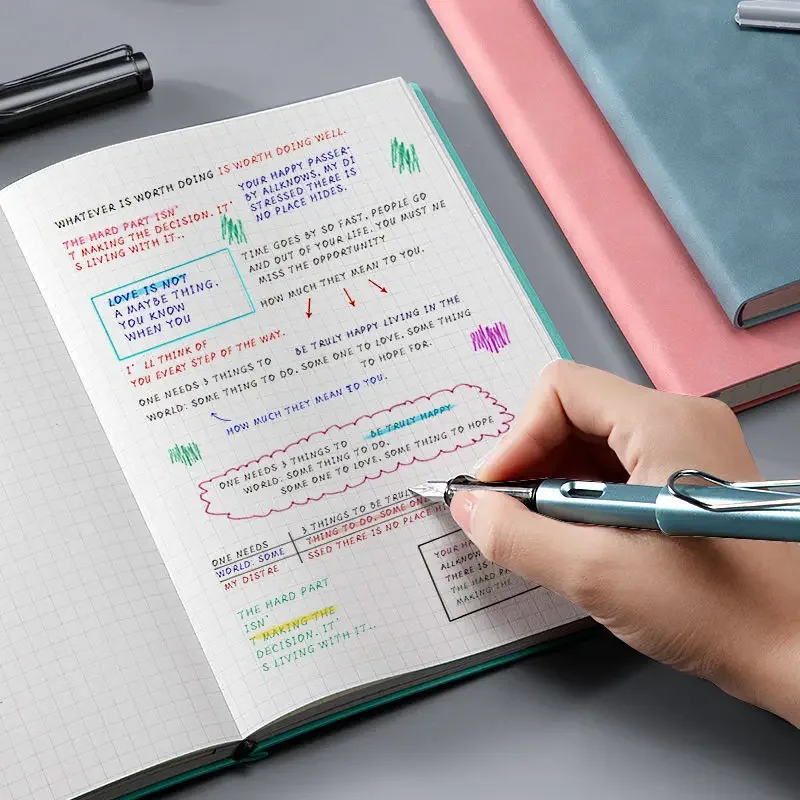 WHATEVER IS WORTH DOING IS WORTH DOING WELL.
THE HARD PART ISN'
T MAKING THE DECISION. IT'
S LIVING WITH IT..
YOUR HAPPY PASSER-
BY ALLKNOWS, MY DI
STRESSED THERE IS
NO PLACE HIDES.
TIME GOES BY SO FAST, PEOPLE GO
AND OUT OF YOUR LIFE. YOU MUST NE
MISS THE OPPORTUNITY
HOW MUCH THEY MEAN TO YOU.
LOVE IS NOT
A MAYBE THING.
YOU KNOW
WHEN YOU
I' LL THINK OF
YOU EVERY STEP OF THE WAY.
ONE NEEDS 3 THINGS TO BE TRULY HAPPY LIVING IN THE
WORLD: SOME THING TO DO. SOME ONE TO LOVE, SOME THING
TO HOPE FOR.
HOW MUCH THEY MEAN TO YOU.
ONE NEEDS 3 THINGS TO BE TRULY HAPPY
WORLD: SOME THING TO DO.
SOME ONE TO LOVE, SOME THING TO HOPE
ONE NEEDS 3 THINGS TO BE TRULY
WORLD: SOME THING TO DO. SOME ONE
MY DISTRE SSED THERE IS NO PLACE HI
YOUR HA
ALLKNOW
THERE IS
THE HARD PA
MAKING THE
THE HARD PART
ISN'
T MAKING THE
DECISION. IT'
S LIVING WITH IT..